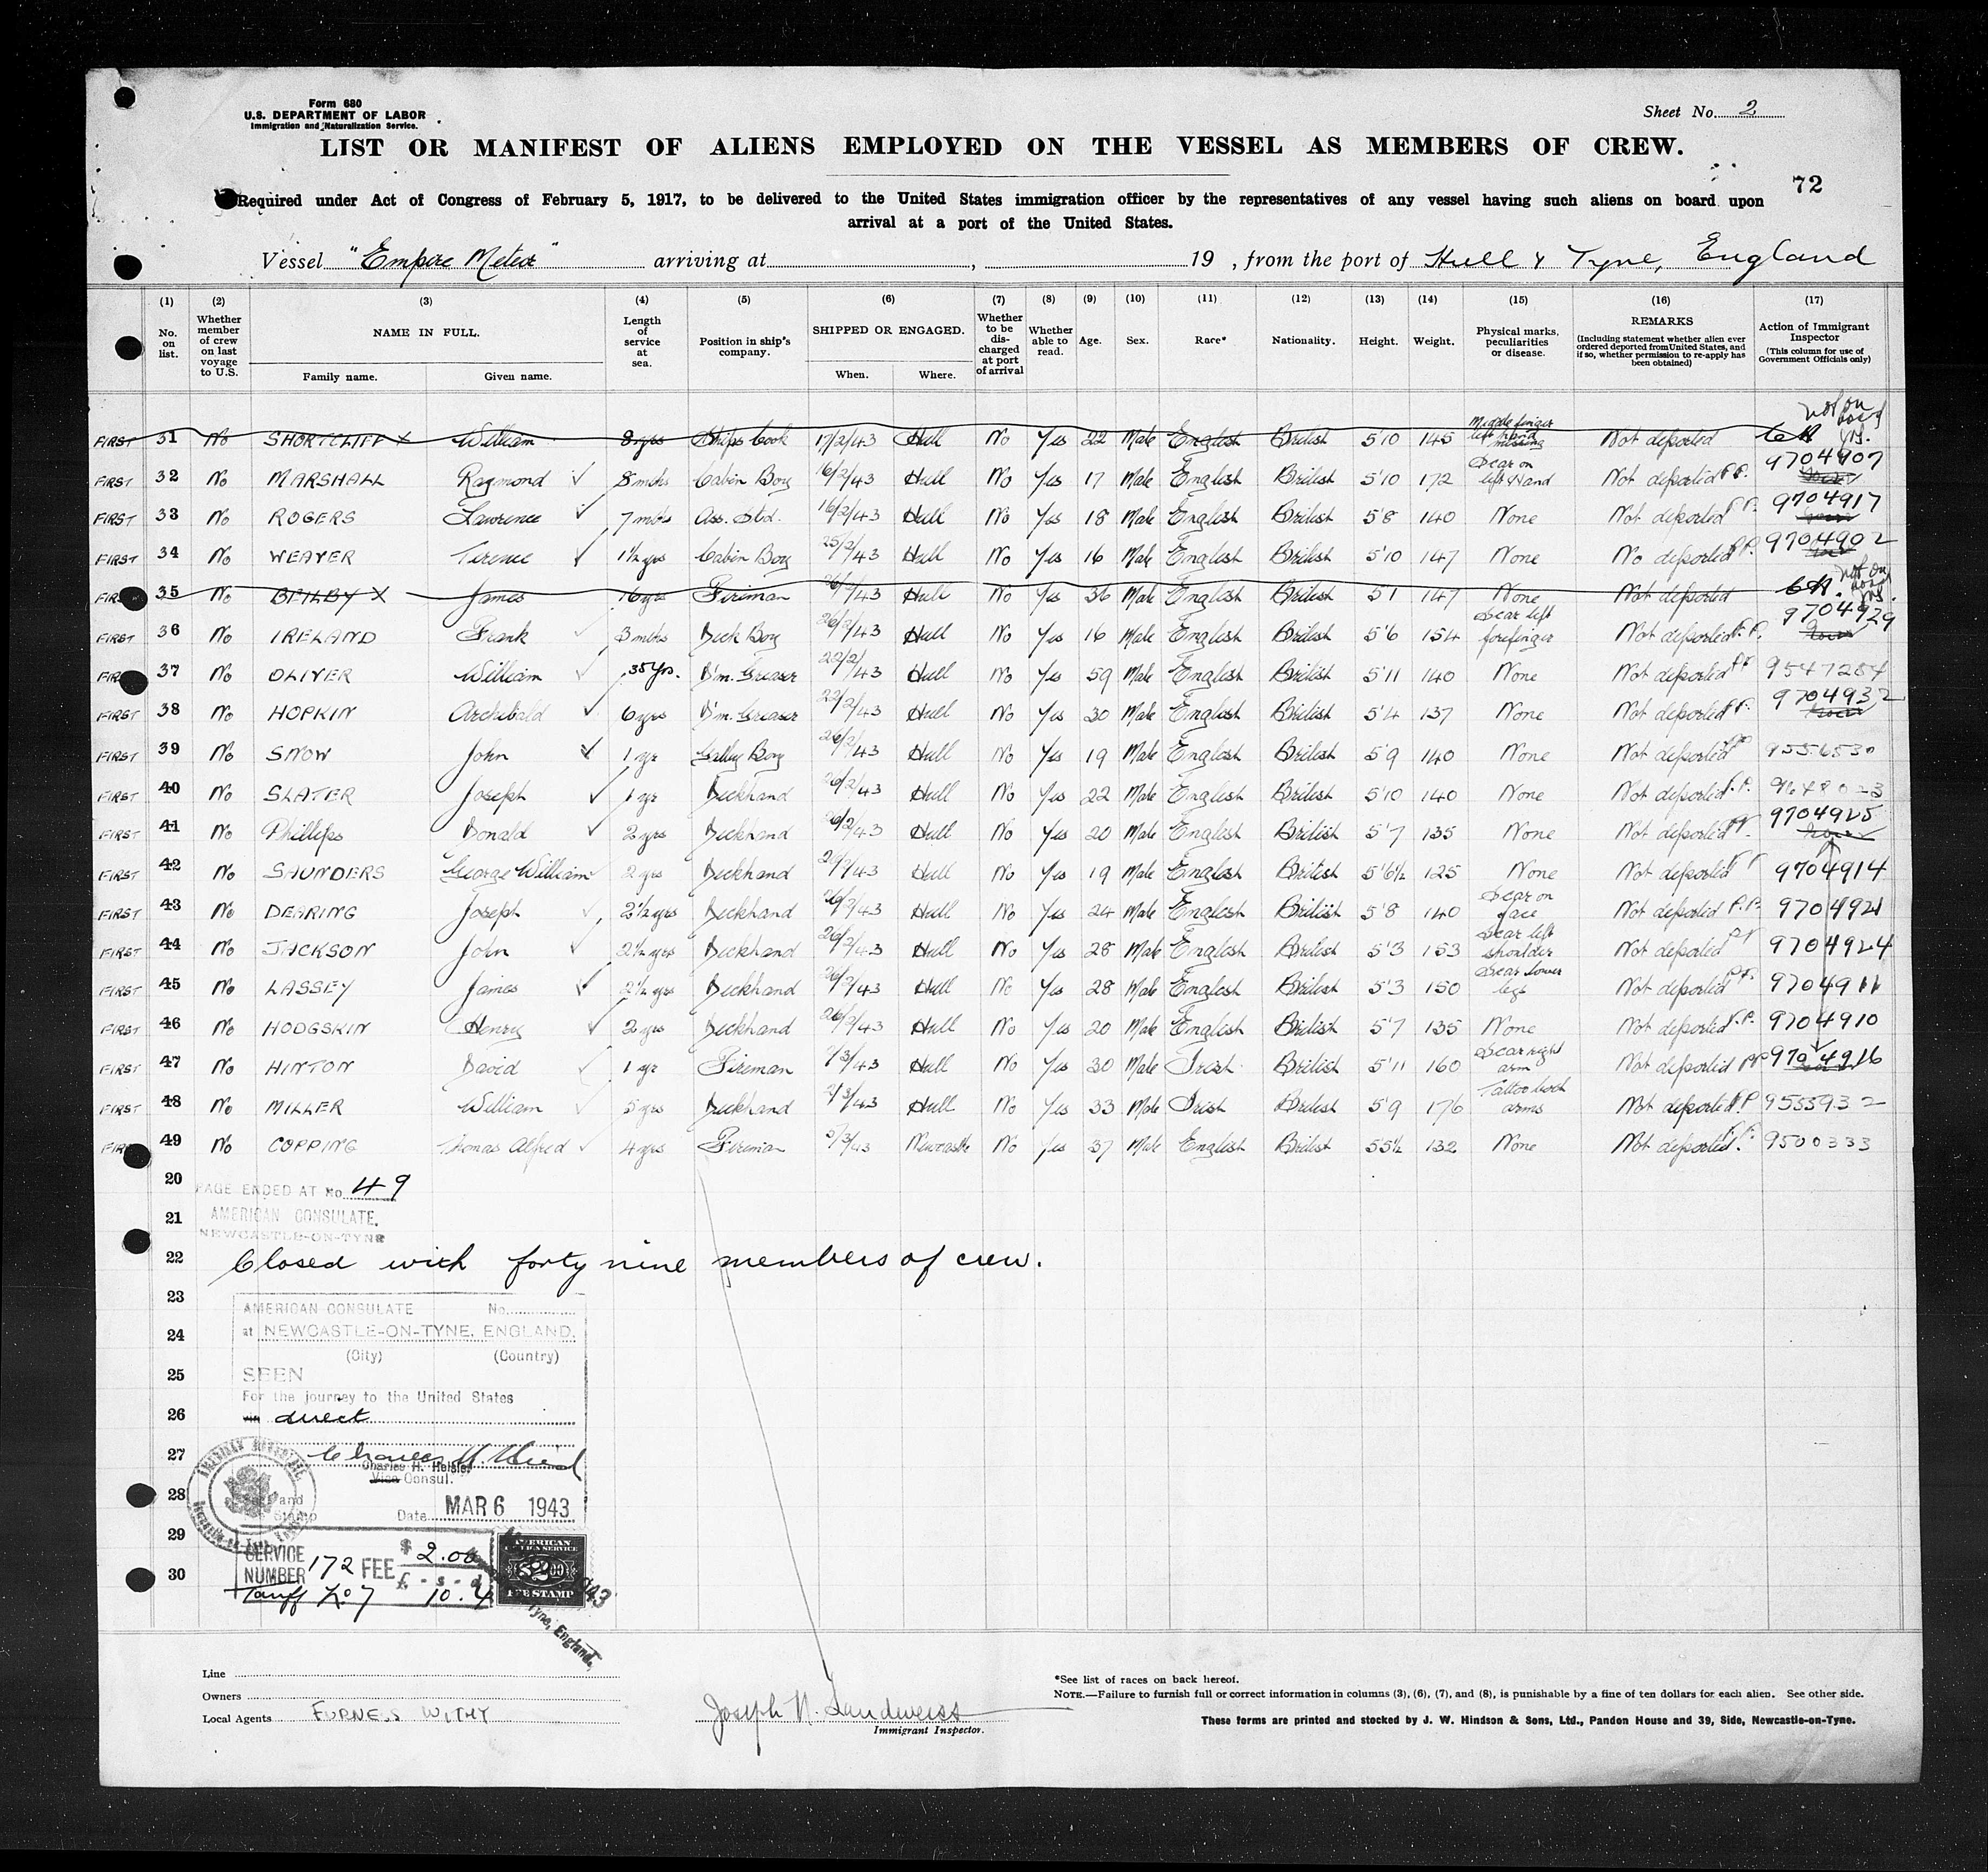 Form 680
U.S. DEPARTMENT OF LABOR
Immigration and Naturalization Service.
Sheet No. 2
LIST OR MANIFEST OF ALIENS EMPLOYED ON THE VESSEL AS MEMBERS OF CREW.
72
Required under Act of Congress of February 5, 1917, to be delivered to the United States immigration officer by the representatives of any vessel having such aliens on board upon
arrival at a port of the United States.
Vessel "Empire Meteor" arriving at , 19 , from the port of Hull & Tyne, England
(1) (2) (3) (4) (5) (6) (7) (8) (9) (10) (11) (12) (13) (14) (15) (16) (17)
No. on list. Whether member of crew on last voyage to U.S. NAME IN FULL. Family name. Given name. Length of service at sea. Position in ship's company. SHIPPED OR ENGAGED. When. Where. Whether to be discharged at port of arrival Whether able to read. Age. Sex. Race* Nationality. Height. Weight. Physical marks, peculiarities or disease. REMARKS (Including statement whether alien ever ordered deported from United States, and if so, whether permission to re-apply has been obtained) Action of Immigrant Inspector (This column for use of Government Officials only)
FIRST 31 No SHORTCLIFF X William 8 yrs Ships Cook 17/2/43 Hull No Yes 22 Male English British 5'10 145 Middle finger left hand missing Not deported not on board
FIRST 32 No MARSHALL Raymond 8 mths Cabin Boy 16/2/43 Hull No Yes 17 Male English British 5'10 172 Scar on left Hand Not deported P.P. 9704907
FIRST 33 No ROGERS Lawrence 7 mths Ass. Std. 16/2/43 Hull No Yes 18 Male English British 5'8 140 None Not deported P.P. 9704917
FIRST 34 No WEAVER Terence 1½ yrs Cabin Boy 25/2/43 Hull No Yes 16 Male English British 5'10 147 None No deported P.P. 9704902
FIRST 35 No BEILBY X James 16 yrs Fireman 26/2/43 Hull No Yes 36 Male English British 5'1 147 None Not deported not on board
FIRST 36 No IRELAND Frank 3 mths Deck Boy 26/2/43 Hull No Yes 16 Male English British 5'6 154 Scar left forefinger Not deported P.P. 9704929
FIRST 37 No OLIVER William 35 yrs. D'm. Greaser 22/2/43 Hull No Yes 59 Male English British 5'11 140 None Not deported PP 9547284
FIRST 38 No HOPKIN Archibald 6 yrs D'm. Greaser 22/2/43 Hull No Yes 30 Male English British 5'4 137 None Not deported P.P. 9704932
FIRST 39 No SNOW John 1 yr Galley Boy 26/2/43 Hull No Yes 19 Male English British 5'9 140 None Not deported PP 9556530
FIRST 40 No SLATER Joseph 1 yr Deckhand 26/2/43 Hull No Yes 22 Male English British 5'10 140 None Not deported P.P. 9648023
FIRST 41 No Phillips Donald 2 yrs Deckhand 26/2/43 Hull No Yes 20 Male English British 5'7 135 None Not deported PP. 9704925
FIRST 42 No SAUNDERS George William 2 yrs Deckhand 26/2/43 Hull No Yes 19 Male English British 5'6½ 125 None Not deported PP 9704914
FIRST 43 No DEARING Joseph 2½ yrs Deckhand 26/2/43 Hull No Yes 24 Male English British 5'8 140 Scar on face Not deported P.P. 9704921
FIRST 44 No JACKSON John 2½ yrs Deckhand 26/2/43 Hull No Yes 28 Male English British 5'3 153 Scar left shoulder Not deported PP 9704924
FIRST 45 No LASSEY James 2½ yrs Deckhand 26/2/43 Hull No Yes 28 Male English British 5'3 150 Scar lower legs Not deported P.P. 9704911
FIRST 46 No HODGSKIN Henry 2 yrs Deckhand 26/2/43 Hull No Yes 20 Male English British 5'7 135 None Not deported P.P. 9704910
FIRST 47 No HINTON David 1 yr Fireman 2/3/43 Hull No Yes 30 Male Irish British 5'11 160 Scar right arm Not deported PP 9704916
FIRST 48 No MILLER William 5 yrs Deckhand 2/3/43 Hull No Yes 33 Male Irish British 5'9 176 Tattoo both arms Not deported P.P 9553932
FIRST 49 No COPPING Thomas Alfred 4 yrs Fireman 5/3/43 Newcastle No Yes 37 Male English British 5'5½ 132 None Not deported P.P. 9500333
20 PAGE ENDED AT No. 49
21 AMERICAN CONSULATE,
NEWCASTLE-ON-TYNE
22 Closed with forty nine members of crew.
23 AMERICAN CONSULATE No.
24 at NEWCASTLE-ON-TYNE, ENGLAND.
(City) (Country)
25 SEEN
For the journey to the United States
26 via direct
27
Charles H. Heisler
Vice Consul.
28 Seal and Stamp Date MAR 6 1943
29 SERVICE NUMBER 172 FEE $ 2.00
£ - s - d
30 Tariff No 7 10.4
AMERICAN FOREIGN SERVICE $2.00 FEE STAMP
Tyne, England.
Line
Owners
Local Agents FURNESS WITHY
Joseph N. Landweiss
Immigrant Inspector.
*See list of races on back hereof.
NOTE.—Failure to furnish full or correct information in columns (3), (6), (7), and (8), is punishable by a fine of ten dollars for each alien. See other side.
These forms are printed and stocked by J. W. Hindson & Sons, Ltd., Pandon House and 39, Side, Newcastle-on-Tyne.